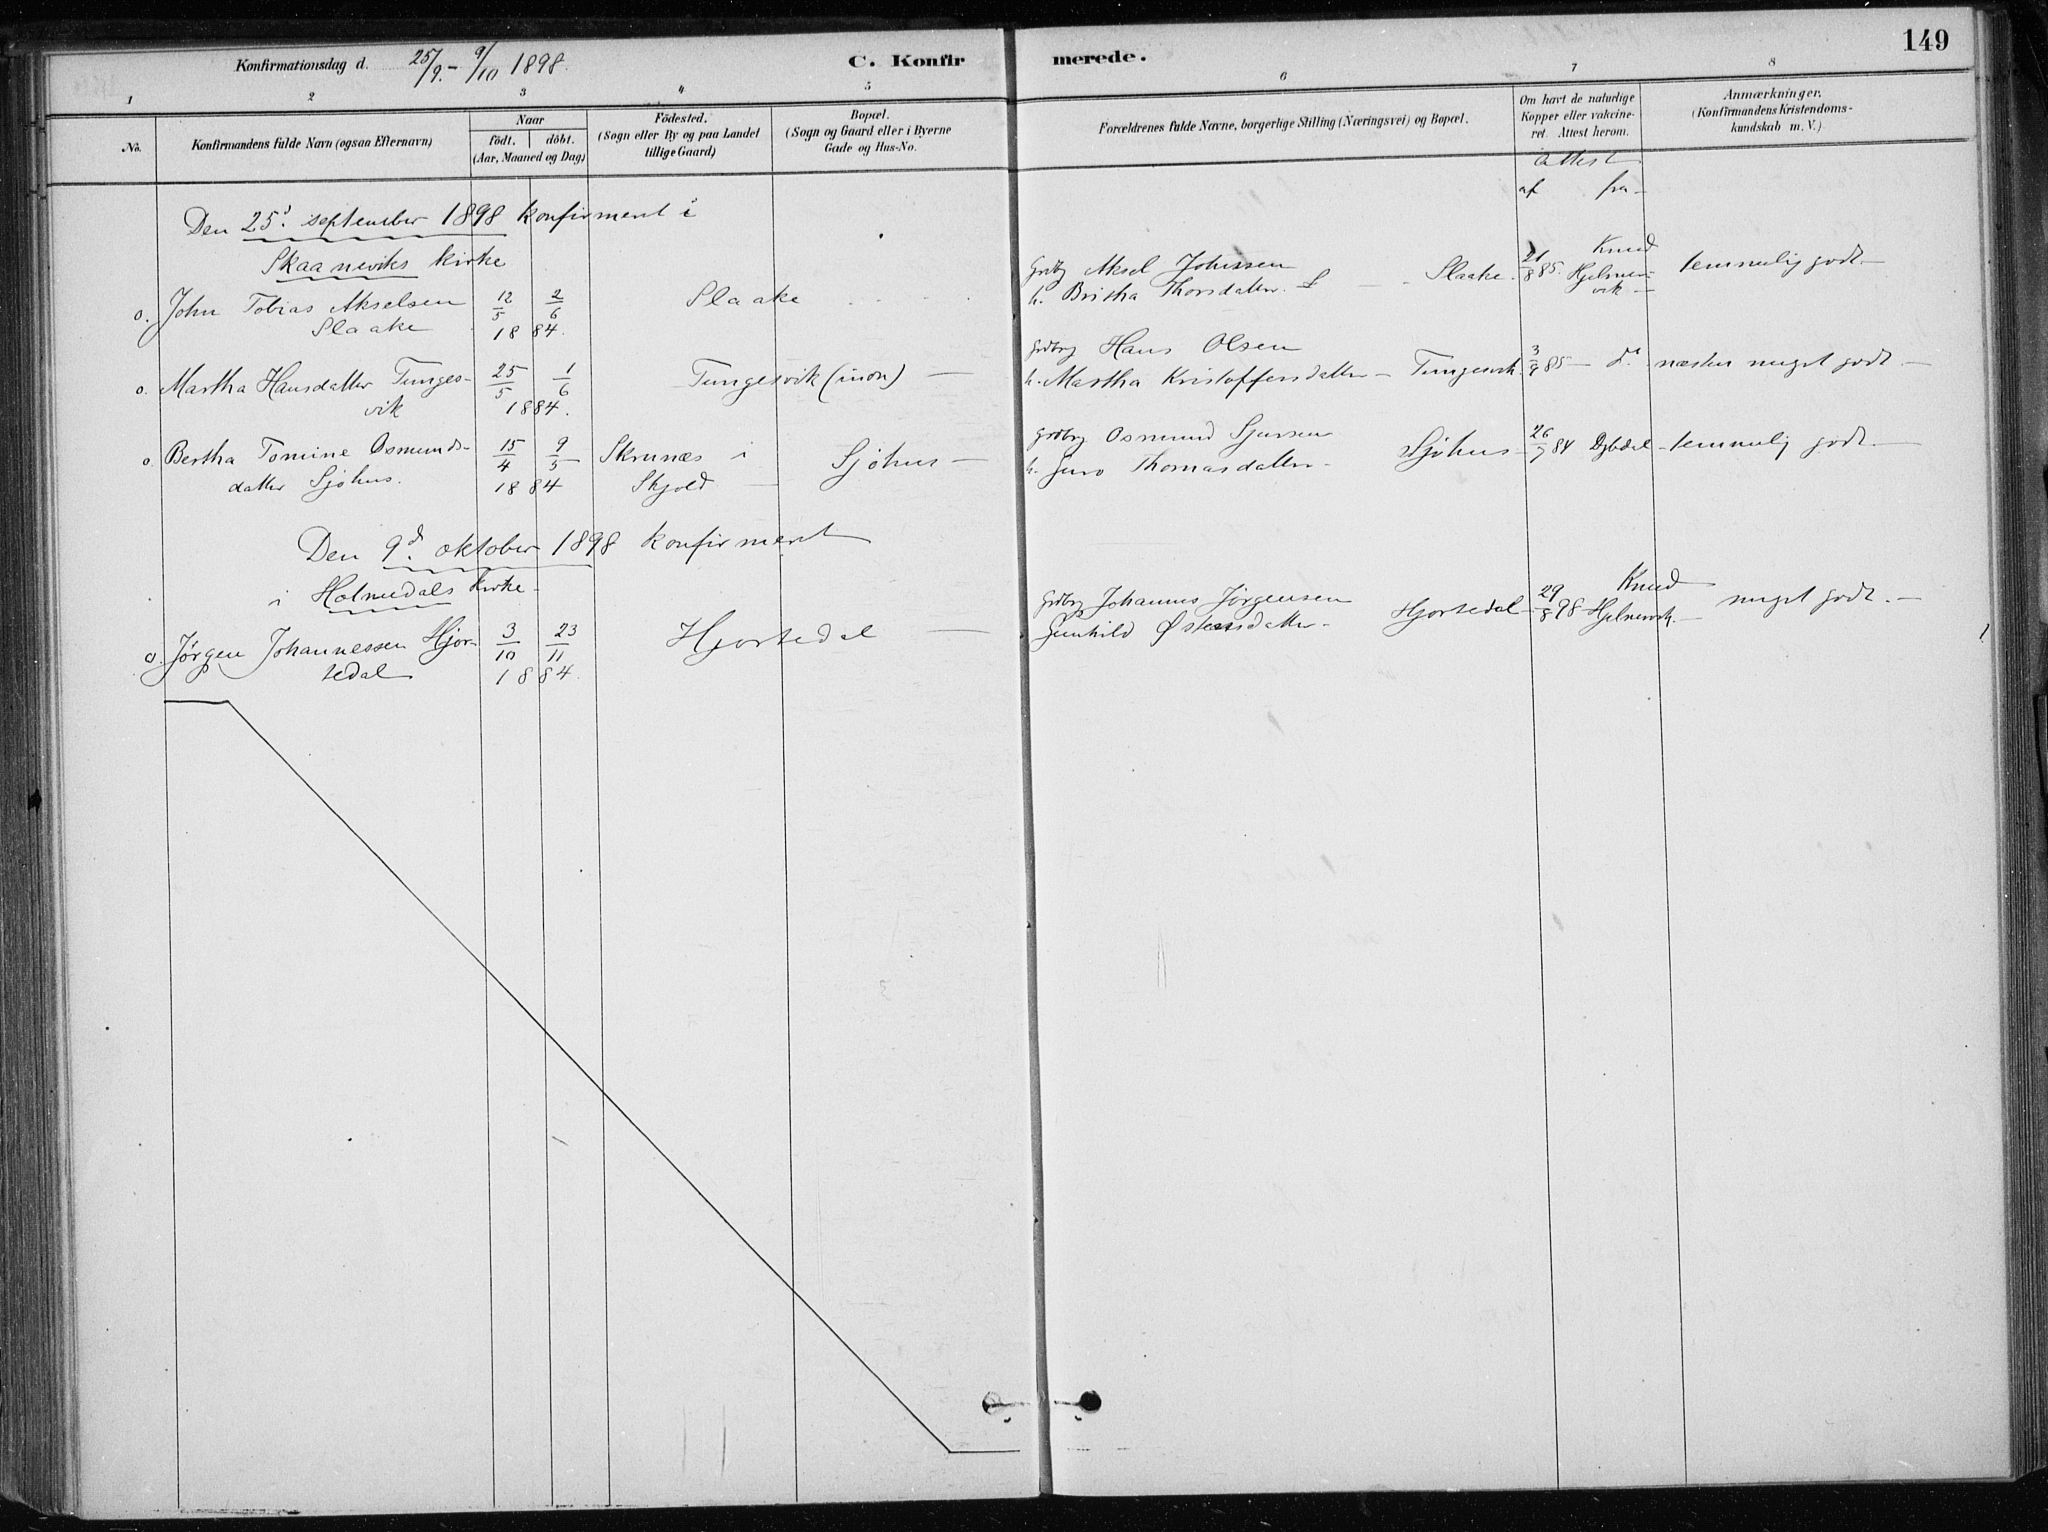 149
Konfirmationsdag d. 25/9. - 9/10 1898.
C. Konfirmerede.
1 2 3 4 5 6 7 8
No.
Konfirmandens fulde Navn (ogsaa Efternavn)
Naar
födt. döbt.
(Aar, Maaned og Dag)
Födested.
(Sogn eller By og paa Landet
tillige Gaard)
Bopæl.
(Sogn og Gaard eller i Byerne
Gade og Hus-No.
Forældrenes fulde Navne, borgerlige Stilling (Næringsvei) og Bopæl.
Om havt de naturlige
Kopper eller vakcine-
ret. Attest herom.
Anmærkninger.
(Konfirmandens Kristendoms-
kundskab m. V.)
Attest
af fra
Den 25d. september 1898 konfirmeret i
Skaaneviks kirke
o. John Tobias Akselsen
Slaake
12/5 2/6
1884.
Slaake
Grdbr Aksel
h. Britha Thorsdatter
Slaake.
21/8 85. Knud
Hjelmer-
vik
temmelig godt.
o. Martha Hansdatter Tunges-
vik
25/5 1/6
1884.
Tungesvik
Grdbr Hans Olsen
h. Martha Kristoffersdatter - Tungesvik.
3/9 85 - do
næsten meget godt
o. Bertha Tomine Osmunds-
datter Sjøhus.
15/4 9/5
1884
Skrunæs i
Skjold
Sjöhus
Grdbr Osmund Sjursen
h. Guro Thomasdatter
Sjöhus
26/7 84 Dybdal
temmelig godt.
Den 9d. oktober 1898 konfirmeret
i Holmedals kirke.
o. Jørgen Johannessen Hjor-
tedal
3/10 23/11
1884.
Hjortedal
Grdbr Johannes Jørgensen
Gunhild Østensdatter
Hjortedal
29/8 98 Knud
Hjelmervik.
meget godt.